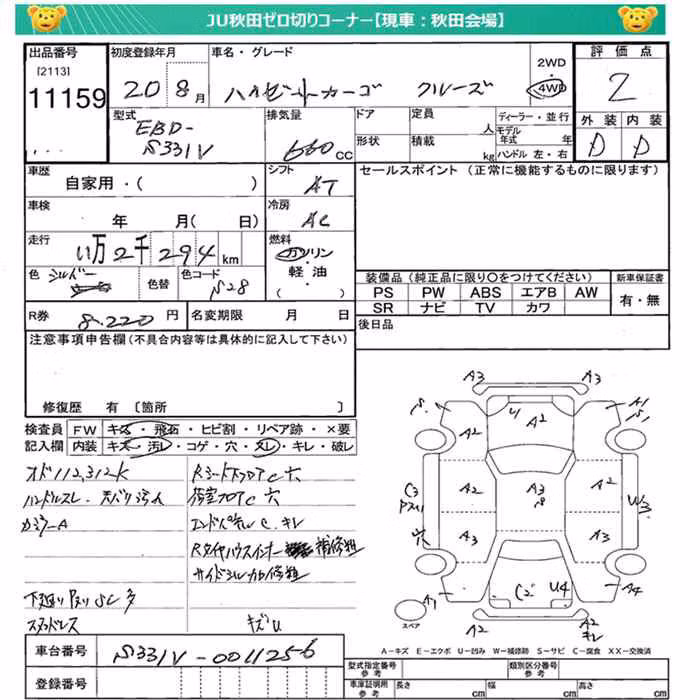 JU秋田ゼロ切りコーナー【現車：秋田会場】
出品番号
[2113]
11159
初度登録年月
20 8月
車名・グレード
ハイゼットカーゴ クルーズ
2WD
4WD
評価点
2
型式
EBD-
S331V
排気量
660cc
ドア
形状
定員
人
積載
kg
ディーラー・並行
モデル年式 年
ハンドル 左・右
外装 内装
D D
車歴
自家用・( )
シフト
AT
セールスポイント (正常に機能するものに限ります)
車検
年 月( 日)
冷房
AC
走行
11万2千294km
燃料
ガソリン
軽油・
( )
色 シルバー
色替
色コード
S28
装備品 (純正品に限り〇をつけてください)
新車保証書
PS PW ABS エアB AW
有・無
SR ナビ TV カワ
R券 8,220円
名変期限 月 日
後日品
注意事項申告欄(不具合内容等は具体的に記入して下さい)
修復歴 有 〔箇所 〕
検査員 FW キズ・飛石・ヒビ割・リペア跡・×要
記入欄 内装 キズ・汚レ・コゲ・穴・スレ・キレ・破レ
オド112,312K
ハンドルスレ・天バリ汚れ
下廻り
スタッドレス
キズU
サイドシル
A3 A3
A1
S1
A2 U1 A2 A2
C3
A2 A3 A2
W3
穴 A2 A3
A1 C2 U4 A4
A2 A2
キレ
スペア
A－キズ E－エクボ U－凹み W－補修跡 S－サビ C－腐食 XX－交換済
車台番号 S331V-0011256
登録番号
型式指定番号
参考
類別区分番号
参考
車庫証明用
参考
長さ cm
幅 cm
高さ cm